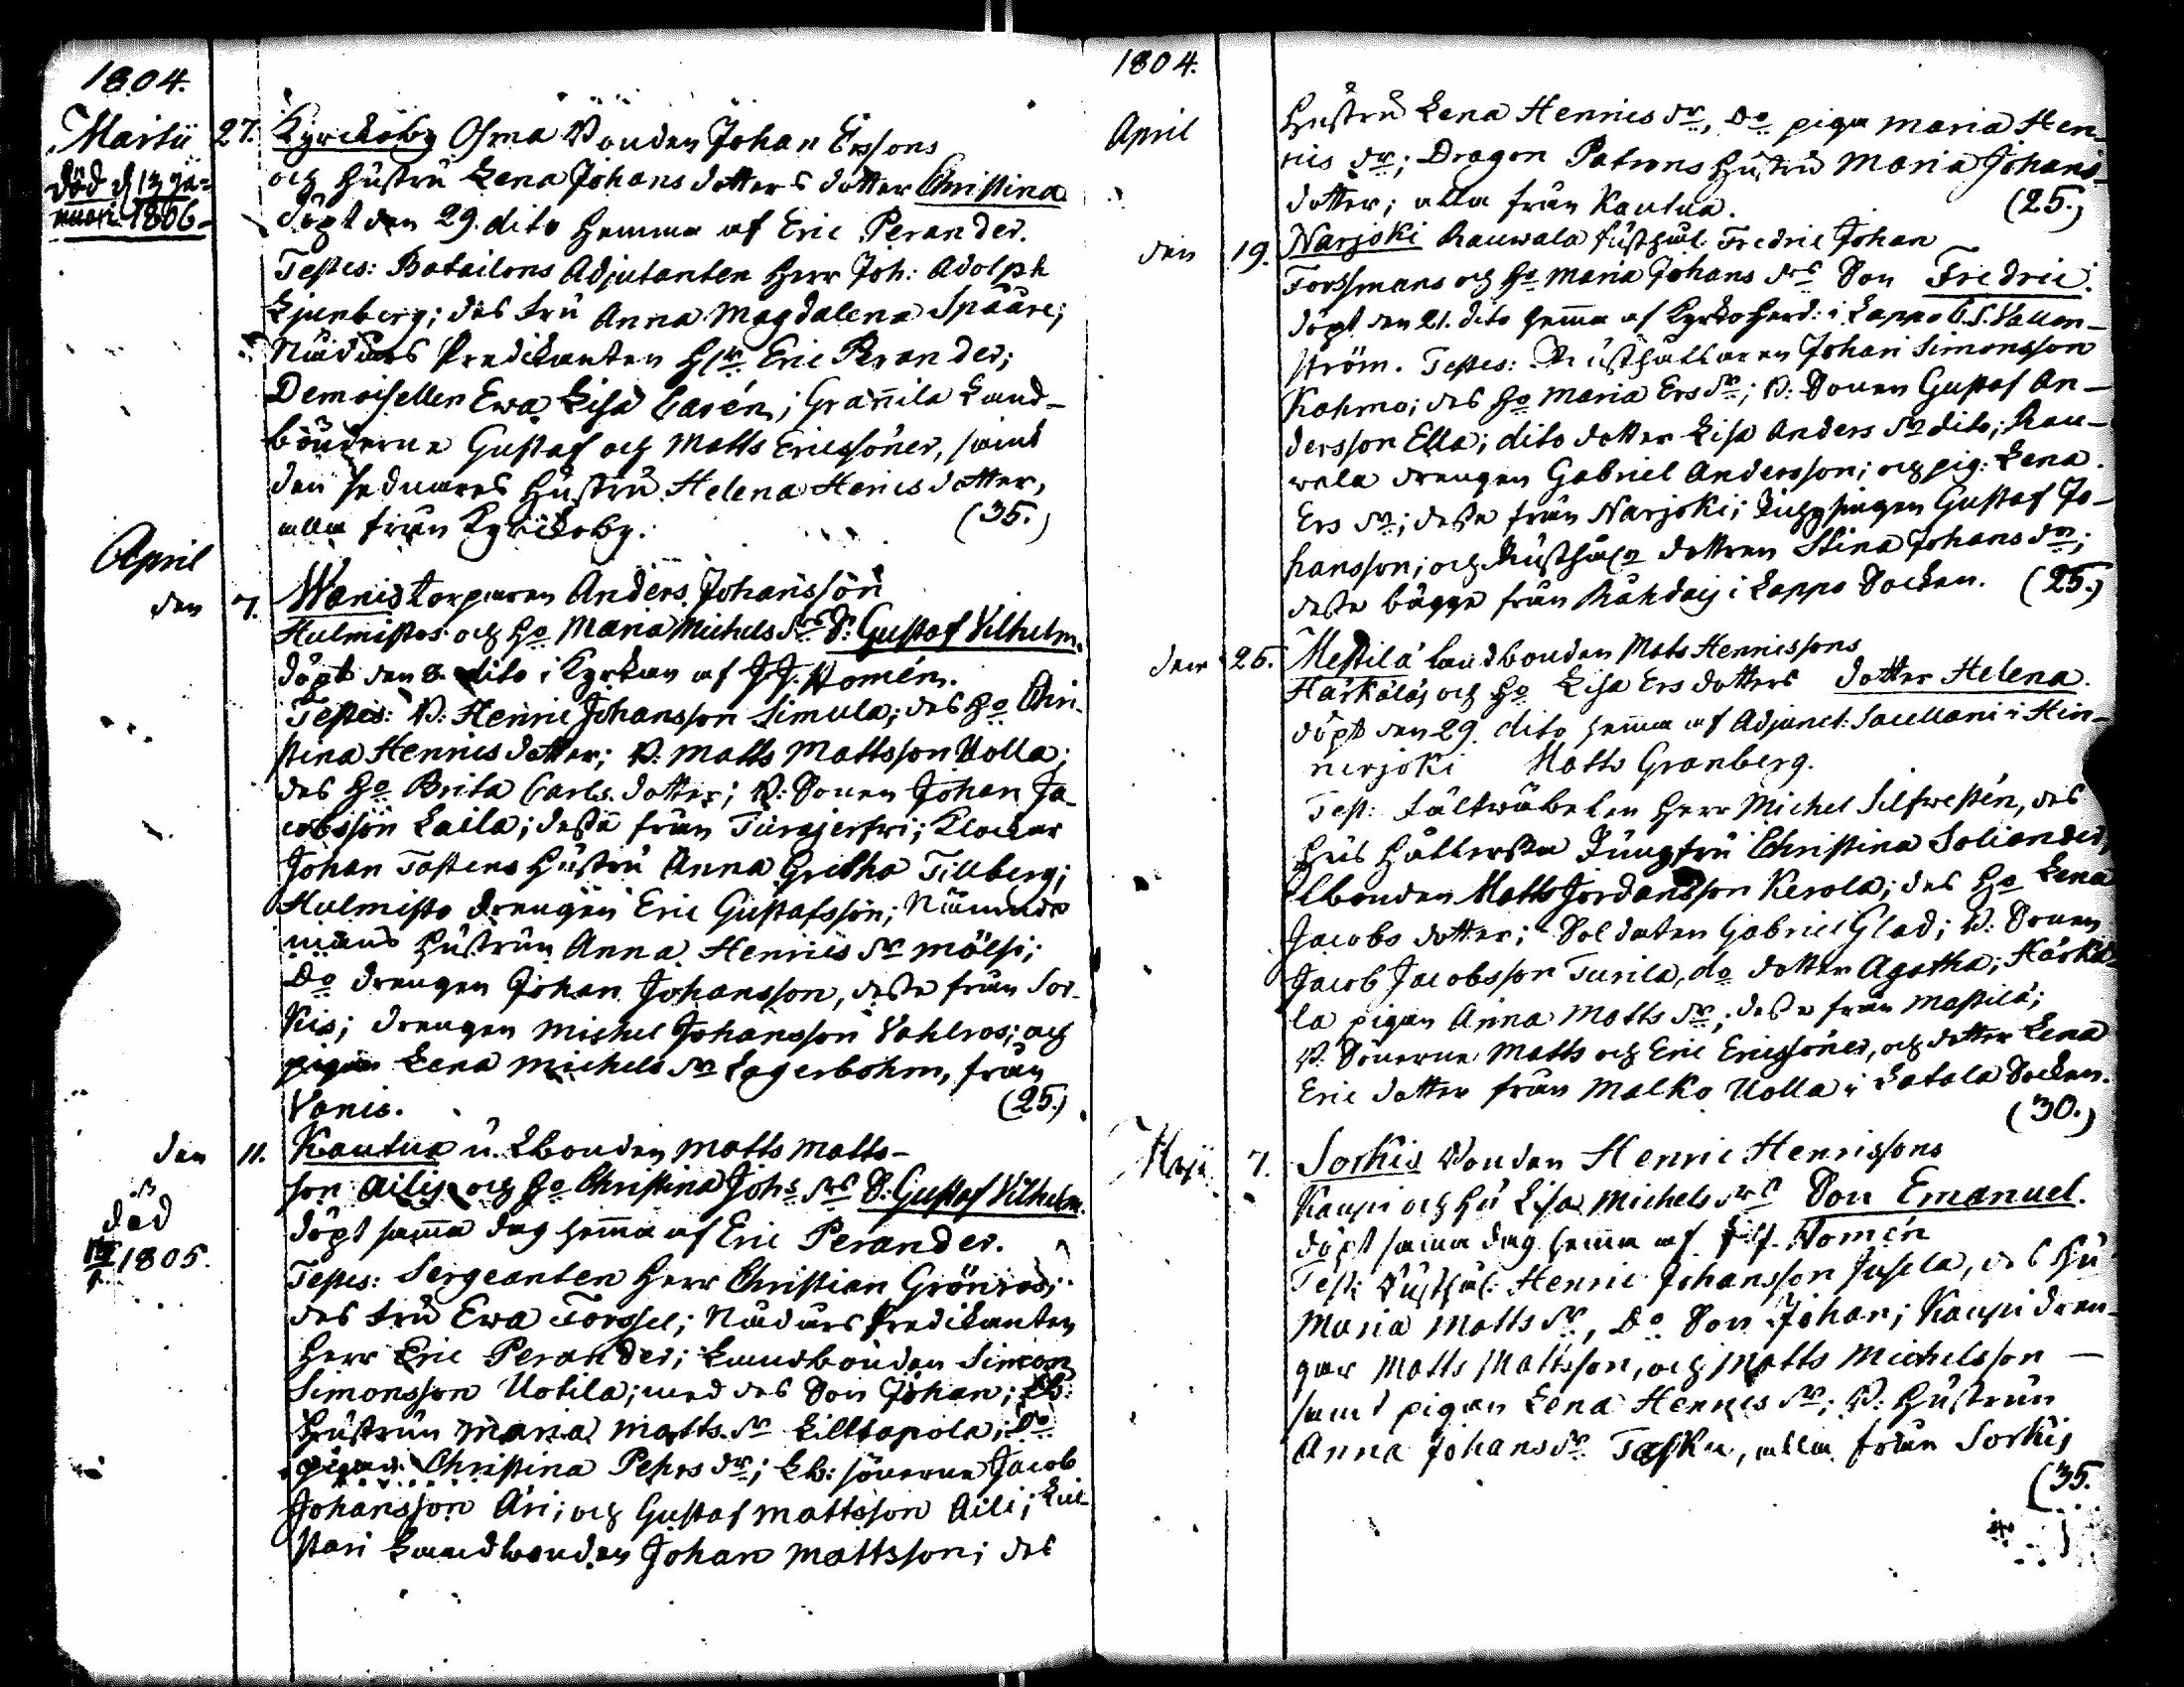 1804.
Martii 27. Kyrckoby Osma Bonden Johan Erssons
död d 13 Ja-
nuari 1806
och hustru Lena Johans dotters dotter Christina
döpt den 29. dito hemma af Eric Perander.
Testes: Batailons Adjutanten Herr Joh: Adolph
Ljunberg; des fru Anna Magdalena Spåare;
Nådårs Predikanten H:r Eric Perander;
Demoisellen Ewa Lisa Carén; Grannila Land-
bönderne Gustaf och Matts Ericssöner, samt
den sednares hustru Helena Henrics dotter,
alla från Kyrckoby. (35.)
April
den 7. Wanis torparen Anders Johansson
Hulmistos och ho Maria Michels drs S: Gustaf Vilhelm.
döpt den 8. dito i Kyrkan af J.J. Homén.
Testes: B: Henric Johansson Simula; des ho Chri-
stina Henrics dotter; B: Matts Mattsson Uolla;
des ho Brita Carls dotter; B: Sonen Johan Ja-
cobsson Laila; desse från Turajerfwi; Klockar
Johan Tastens hustru Anna Gretha Tillberg;
Hulmisto drengen Eric Gustafsson; Nämnde
mans hustrun Anna Henrics dr Mölsi;
Do drengen Johan Johansson, desse från Sor-
kis; drengen Michel Johansson Vahlros; och
pigan Lena Michels dr Lagerbohm, från
Vanis. (25.)
den 11. Kautua u. Lbonden Matts Matts-
son Ailis och ho Christina Johs drs S: Gustaf Vilhelm.
död
1805.
döpt samma dag hemma af Eric Perander.
Testes: Sergeanten Herr Christian Grönros;
des fru Ewa Forssel; Nådårs Predikanten
Herr Eric Perander; Landbonden Simon
Simonsson Uotila; med des Son Johan; Lb:
hustrun Maria Matts dr Lilltapola; Do
pigan Christina Pehrs dr; Lb: sönerne Jacob
Johansson Äri; och Gustaf Mattsson Aili;
stari Landbonden Johan Mattsson; des
1804.
April hustru Lena Henrics dr, Do piga Maria Hen-
rics dr; Dragon Patrons hustru Maria Johans-
dotter; alla från Kautua. (25.)
den 19. Narjoki Rauwala rusthål. Fredric Johan
Forssmans och ho Maria Johans drs Son Fredric.
döpt den 21. dito hemma af Kyrkoherd: i Lappo C.S. Vallen-
ström. Testes: Rusthållaren Johan Simonsson
Kahmo; des ho Maria Ers dr; B: Sonen Gustaf An-
dersson Ella; dito dotter Lisa Anders dr dito; Rau-
wala drengen Gabriel Andersson; och pig: Lena
Ers dr; desse från Narjoki; Gustaf Jo-
hansson; och Rusthålls dottren Stina Johans dr;
desse bägge från i Lappo Socken. (25.)
den 25. Mestilä landbonden Mats Henrissons
Härkäläs och ho Lisa Ers dotters dotter Helena.
döpt den 29. dito hemma af Adjunct: Sacellani i Hin-
nerjoki Matts Granberg.
Test: Fältwäbelen Herr Michel Silfwestén, des
hus hållerska Jungfru Christina Soliander,
Lbonden Matts Jordansson Kerola; des ho Lena
Jacobs dotter; Soldaten Gabriel Glad; B: Sonen
Jacob Jacobsson Turila, do dotter Agatha; Härkä-
la pigan Anna Matts dr; desse från Mestilä;
B. Sönerne Matts och Eric Ericssöner, och dotter Lena
Eric dotter från Malko Uolla i Latala Socken.
(30.)
Maji 7. Sorkis Bonden Henric Henricssons
Kaupi och hu Lisa Michels drs Son Emanuel.
döpt samma dag hemma af J.J. Homén
Test: Rusthål. Henric Johansson Jusela, des hu
Maria Matts dr, Do Son Johan; Kaupi dren-
gar Matts Mattsson, och Matts Michelsson –
samt pigan Lena Henrics dr; B: hustrun
Anna Johans dr Tasku, alla från Sorkis
(35.